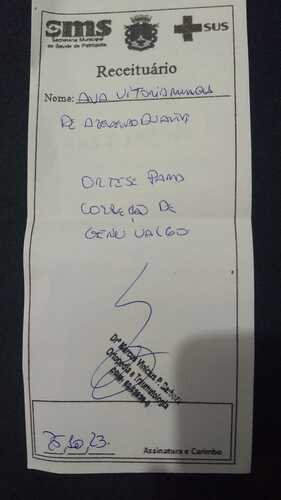 sms
Secretaria Municipal
de Saúde de Petrópolis
SUS
Receituário
Nome: ANA VITORIA
DE AZEVEDO DUARTE
ORTESE PARA
CORREÇÃO DE
GENU VALGO
Dr Marcus Vinicius P.
Ortopedia e Traumatologia
25,10,23.
Assinatura e Carimbo